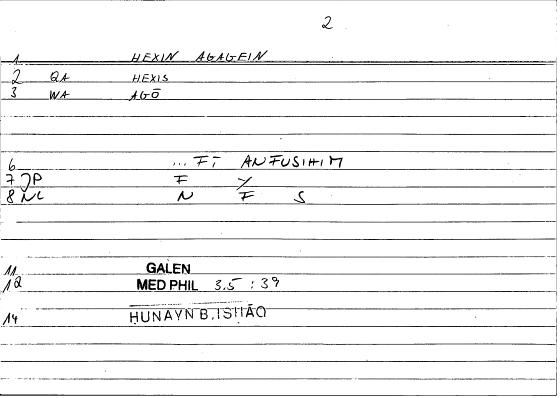 2
1 HEXIN AGAGEIN
2 QA HEXIS
3 WA AGŌ
6 ... FĪ ANFUSIHIM
7 JP F Y
8 NC N F S
11 GALEN
12 MED PHIL 3,5 : 39
14 ḤUNAYN B. ISḤĀQ